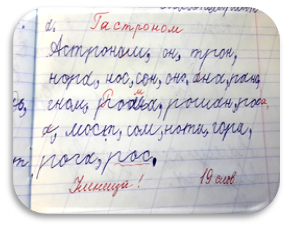 2. Гастроном
Астроном, он, трон,
нора, нос, сон, оно, она, ран,
гном, Рома, роман, роса
а, мост, сом, нота, гора,
рога, рос.
Умница! 19 слов